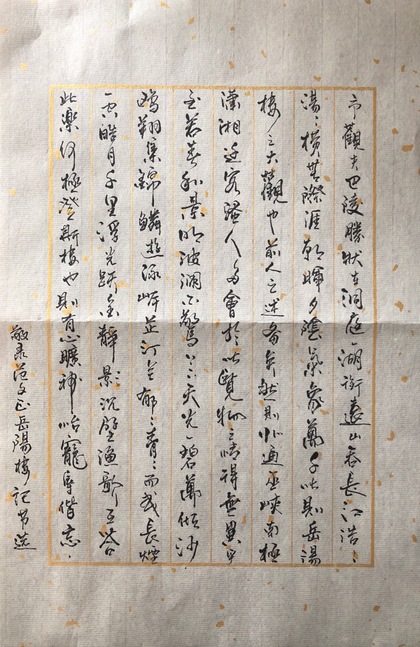 予觀夫巴陵勝狀在洞庭一湖銜遠山吞長江浩〻
湯〻橫無際涯朝暉夕陰氣象萬千此則岳陽
樓之大觀也前人之述備矣然則北通巫峽南極
瀟湘遷客騷人多會於此覽物之情得無異乎
至若春和景明波瀾不驚上下天光一碧萬頃沙
鷗翔集錦鱗游泳岸芷汀蘭郁〻青〻而或長煙
一空皓月千里浮光躍金靜影沉璧漁歌互答
此樂何極登斯樓也則有心曠神怡寵辱偕忘
敬录范文正岳陽樓記節選